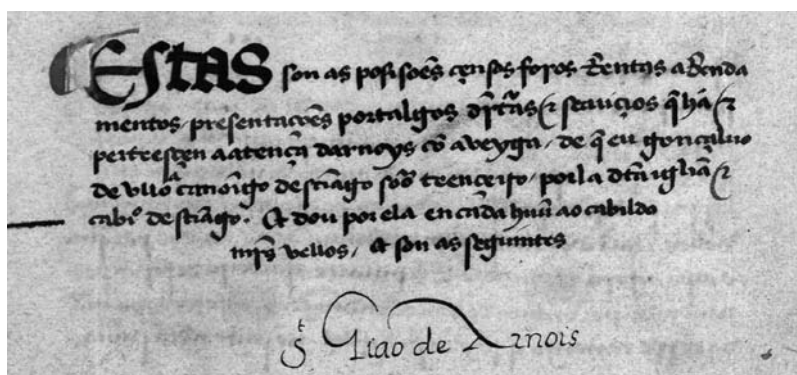 Estas son as posisoẽs çensos foros Rentas aRenda
mentos, presentaçoẽs portalgos dr̃tas & seruiçios q̃ hã &
pertesçen aatençã darnoys cõ aveyga, de q̃ eu gonçaluo
de vlloa canoĩgo de stĩago soõ teenceiro, por la dtã iglliã &
cabiº de stĩago. Et dou por ela en cada huũ ao cabildo
mr̃s vellos, Et son as seguintes
Sᵗ Giao de Arnois